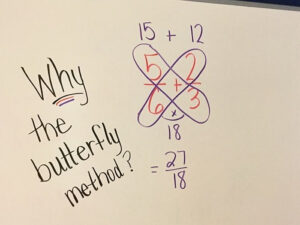 Why
the
butterfly
method?
15 + 12
5/6 + 2/3
x
18
= 27/18